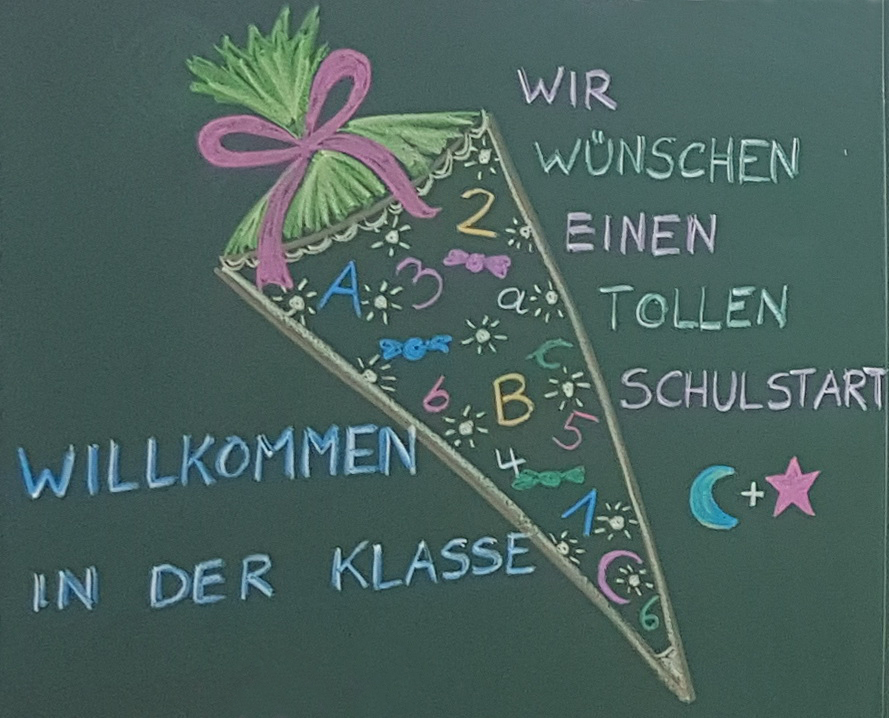 WIR
WÜNSCHEN
EINEN
TOLLEN
SCHULSTART
2
A 3
a
C
6 B
5
4
1
C
6
WILLKOMMEN
IN DER KLASSE
+